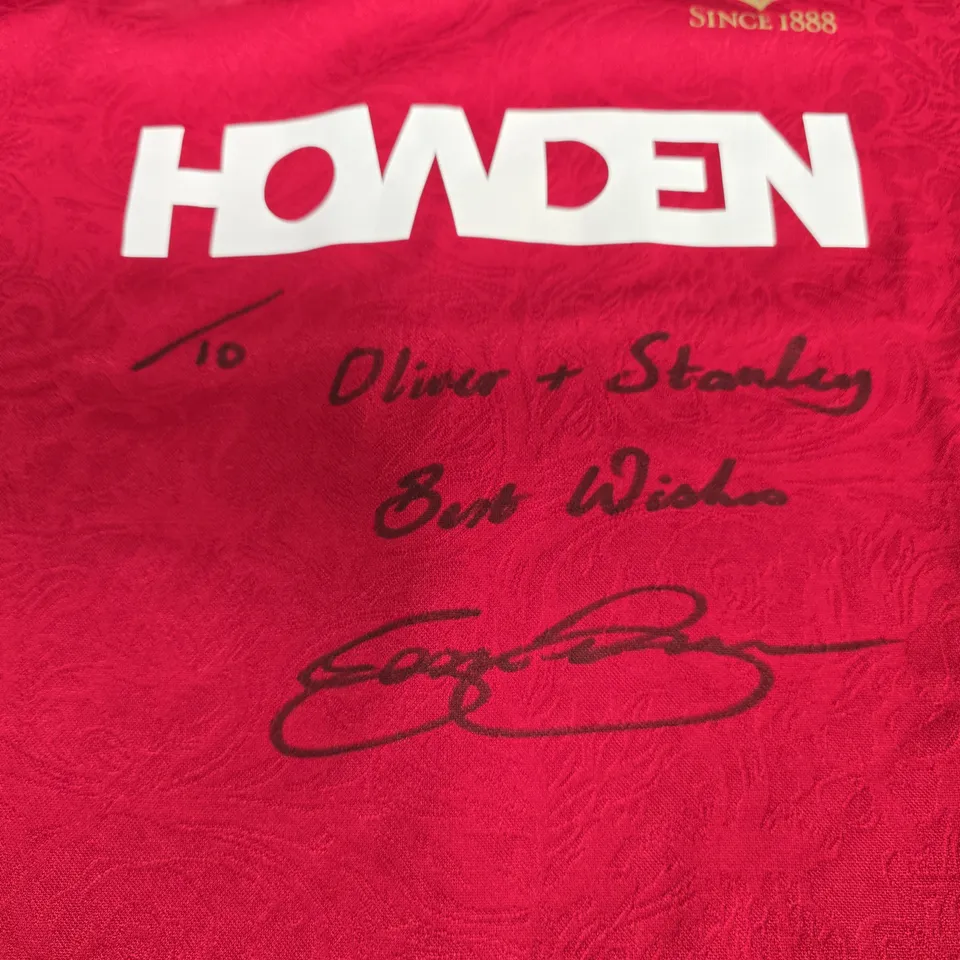 SINCE 1888
HOWDEN
/10 Oliver + Stanley
Best Wishes